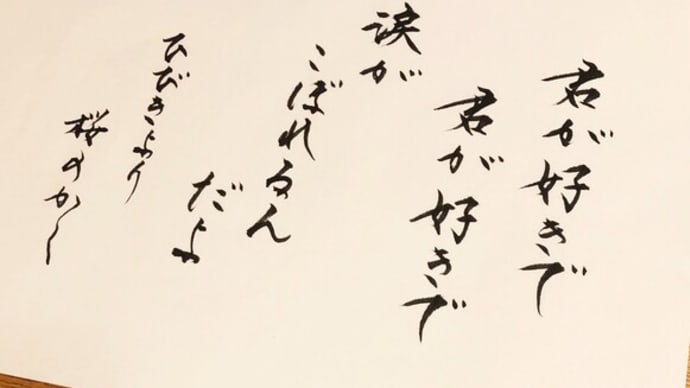 君が好きで
君が好きで
涙が
こぼれるんだよ
ひびきより
桜のか〜